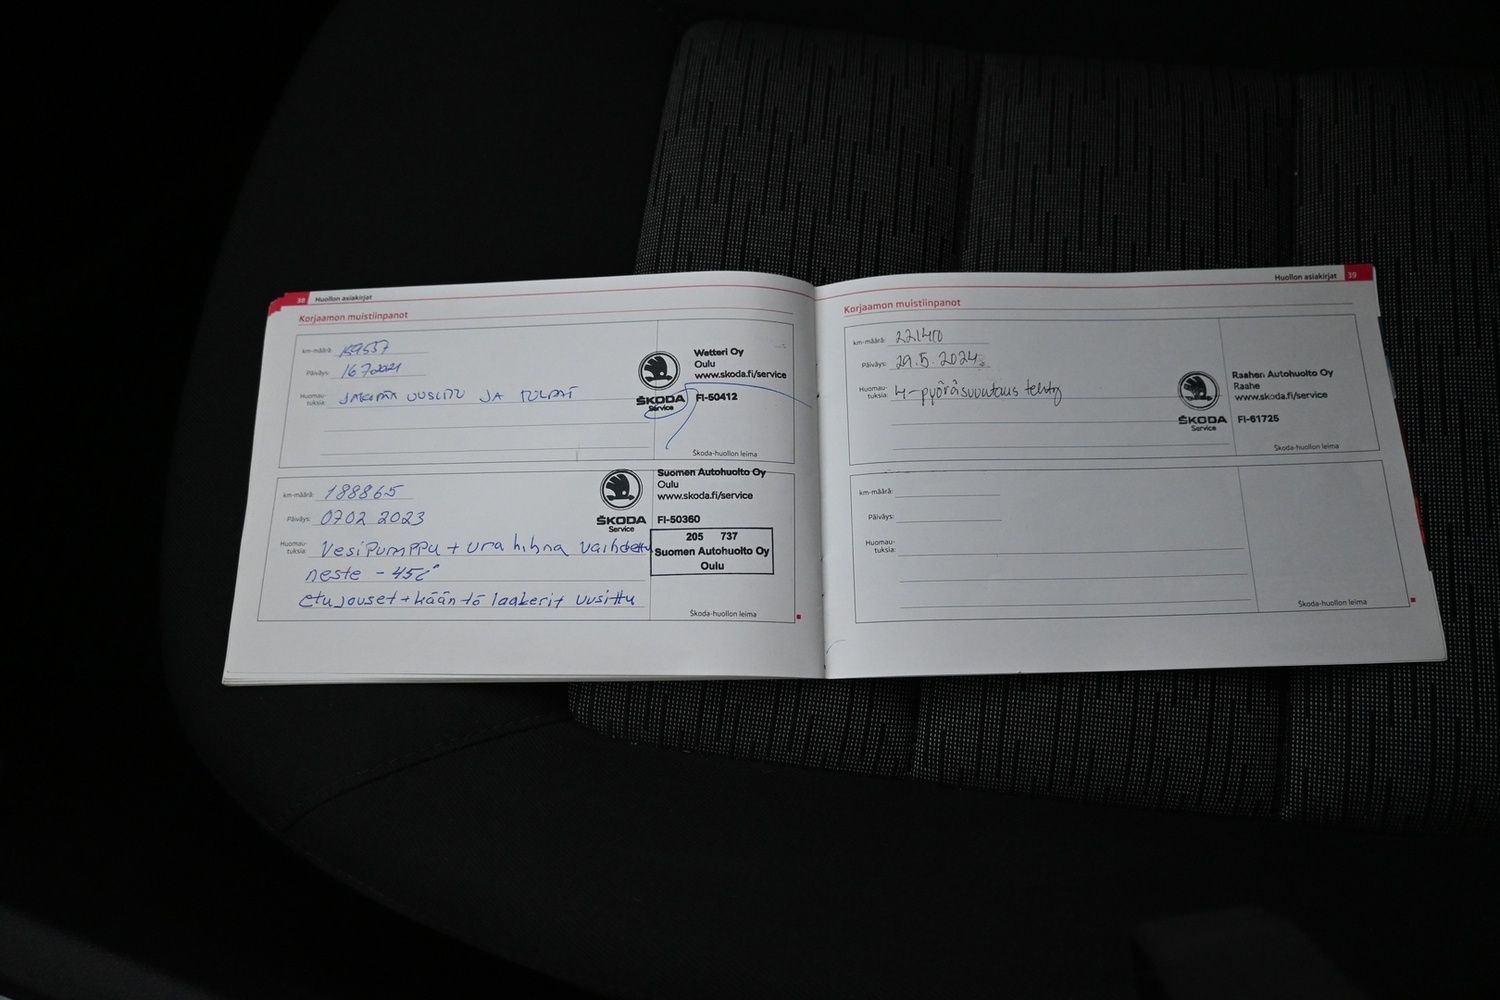 38 Huollon asiakirjat
Korjaamon muistiinpanot
km-määrä: 159557
Päiväys: 16 7 2021
Huomau-
tuksia: JAKOPÄÄ UUSITTU JA TULPAT
Wetteri Oy
Oulu
www.skoda.fi/service
ŠKODA
Service
FI-50412
Škoda-huollon leima
km-määrä: 188865
Päiväys: 07.02 2023
Huomau-
tuksia: Vesipumppu + urahihna vaihdettu
neste -45c°
etujouset + kääntö laakerit uusittu
Suomen Autohuolto Oy
Oulu
www.skoda.fi/service
ŠKODA
Service
FI-50360
205 737
Suomen Autohuolto Oy
Oulu
Škoda-huollon leima
Huollon asiakirjat 39
Korjaamon muistiinpanot
km-määrä: 221410
Päiväys: 29.5.2024
Huomau-
tuksia: 4-pyöräsuuntaus tehty
Raahen Autohuolto Oy
Raahe
www.skoda.fi/service
ŠKODA
Service
FI-61725
Škoda-huollon leima
km-määrä:
Päiväys:
Huomau-
tuksia:
Škoda-huollon leima